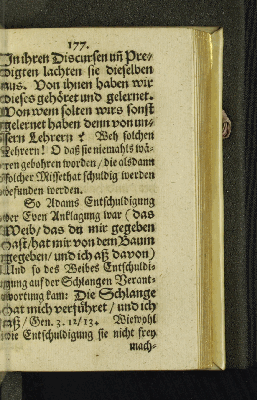 177.
In ihren Discursen uñ Pre-
digten lachten sie dieselben
aus. Von ihnen haben wir
dieses gehöret und gelernet.
Von wem solten wirs sonst
gelernet haben denn von un-
sern Lehrern? Weh solchen
Lehrern! O daß sie niemahls wä-
ren gebohren worden / die alsdann
solcher Missethat schuldig werden
befunden werden.
So Adams Entschuldigung
der Even Anklagung war (das
Weib / das du mir gegeben
hast / hat mir von dem Baum
gegeben / und ich aß davon)
Und so des Weibes Entschuldi-
gung auf der Schlangen Verant-
wortung kam: Die Schlange
hat mich verführet / und ich
aß / Gen. 3. 12 / 13. Wiewohl
die Entschuldigung sie nicht frey
mach-